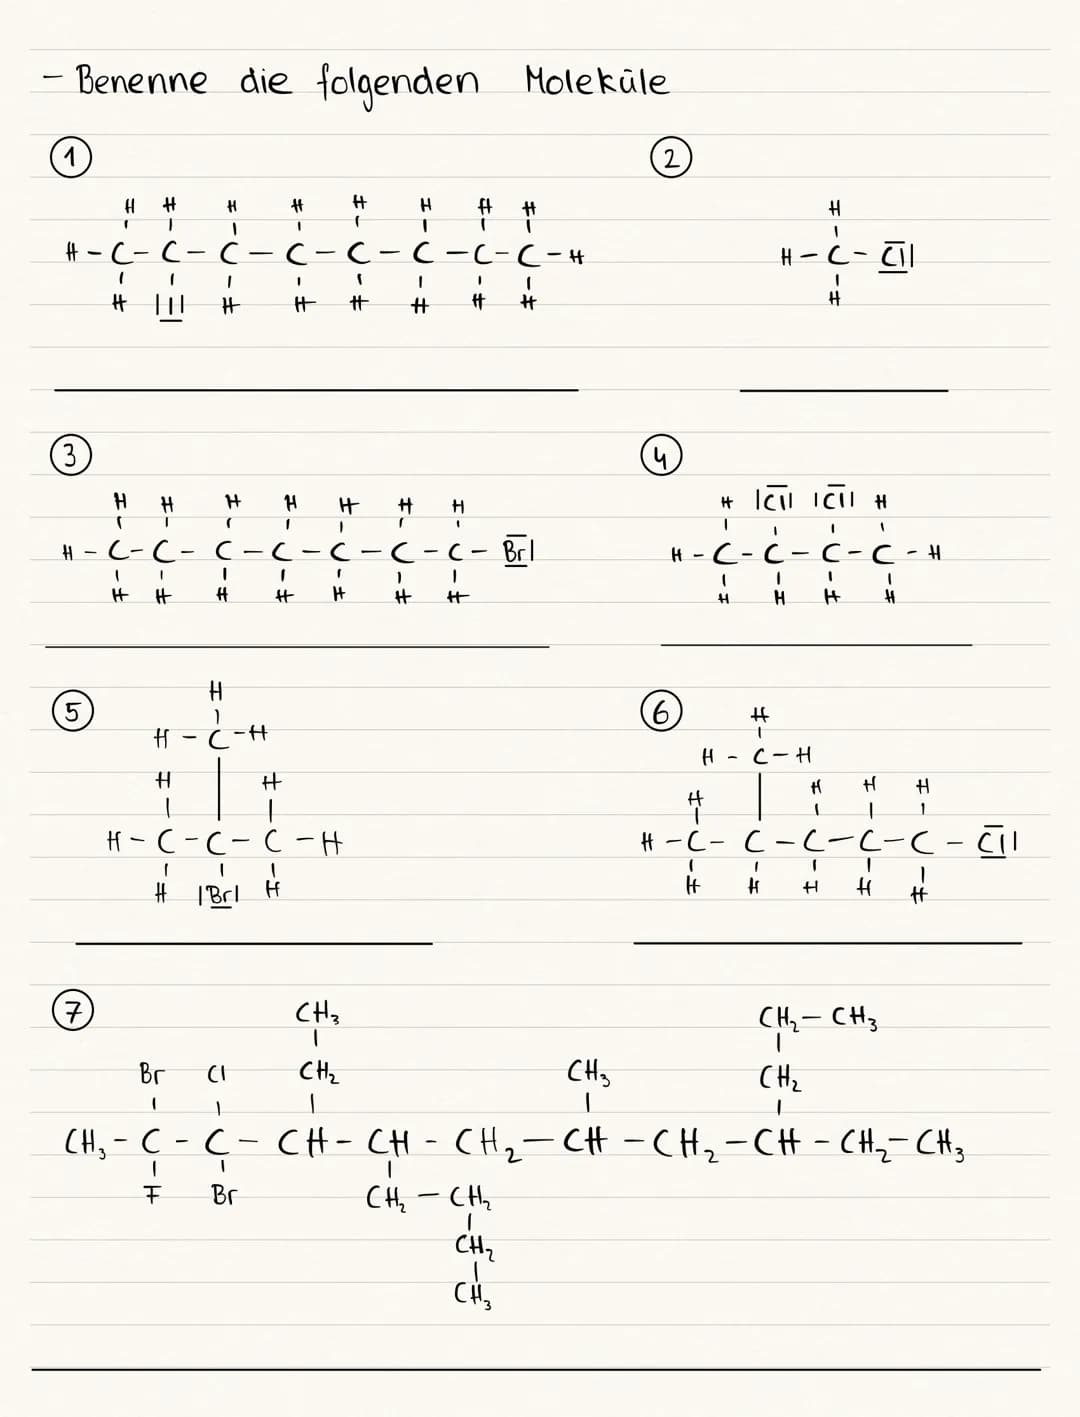 - Benenne die folgenden Moleküle
① ②
H H H H H H H H
H - C - C - C - C - C - C - C - C - H
H |I| H H H H H H
H
H - C - Cl|
H
③ ④
H H H H H H H
H - C - C - C - C - C - C - C - Br|
H H H H H H H
H |Cl| |Cl| H
H - C - C - C - C - H
H H H H
⑤
H
H - C - H
H H
H - C - C - C - H
H |Br| H
⑥
H
H - C - H
H H H H
H - C - C - C - C - C - Cl|
H H H H H
⑦
CH₃ CH₂ - CH₃
Br Cl CH₂ CH₃ CH₂
CH₃ - C - C - CH - CH - CH₂ - CH - CH₂ - CH - CH₂ - CH₃
F Br CH₂ - CH₂
CH₂
CH₃